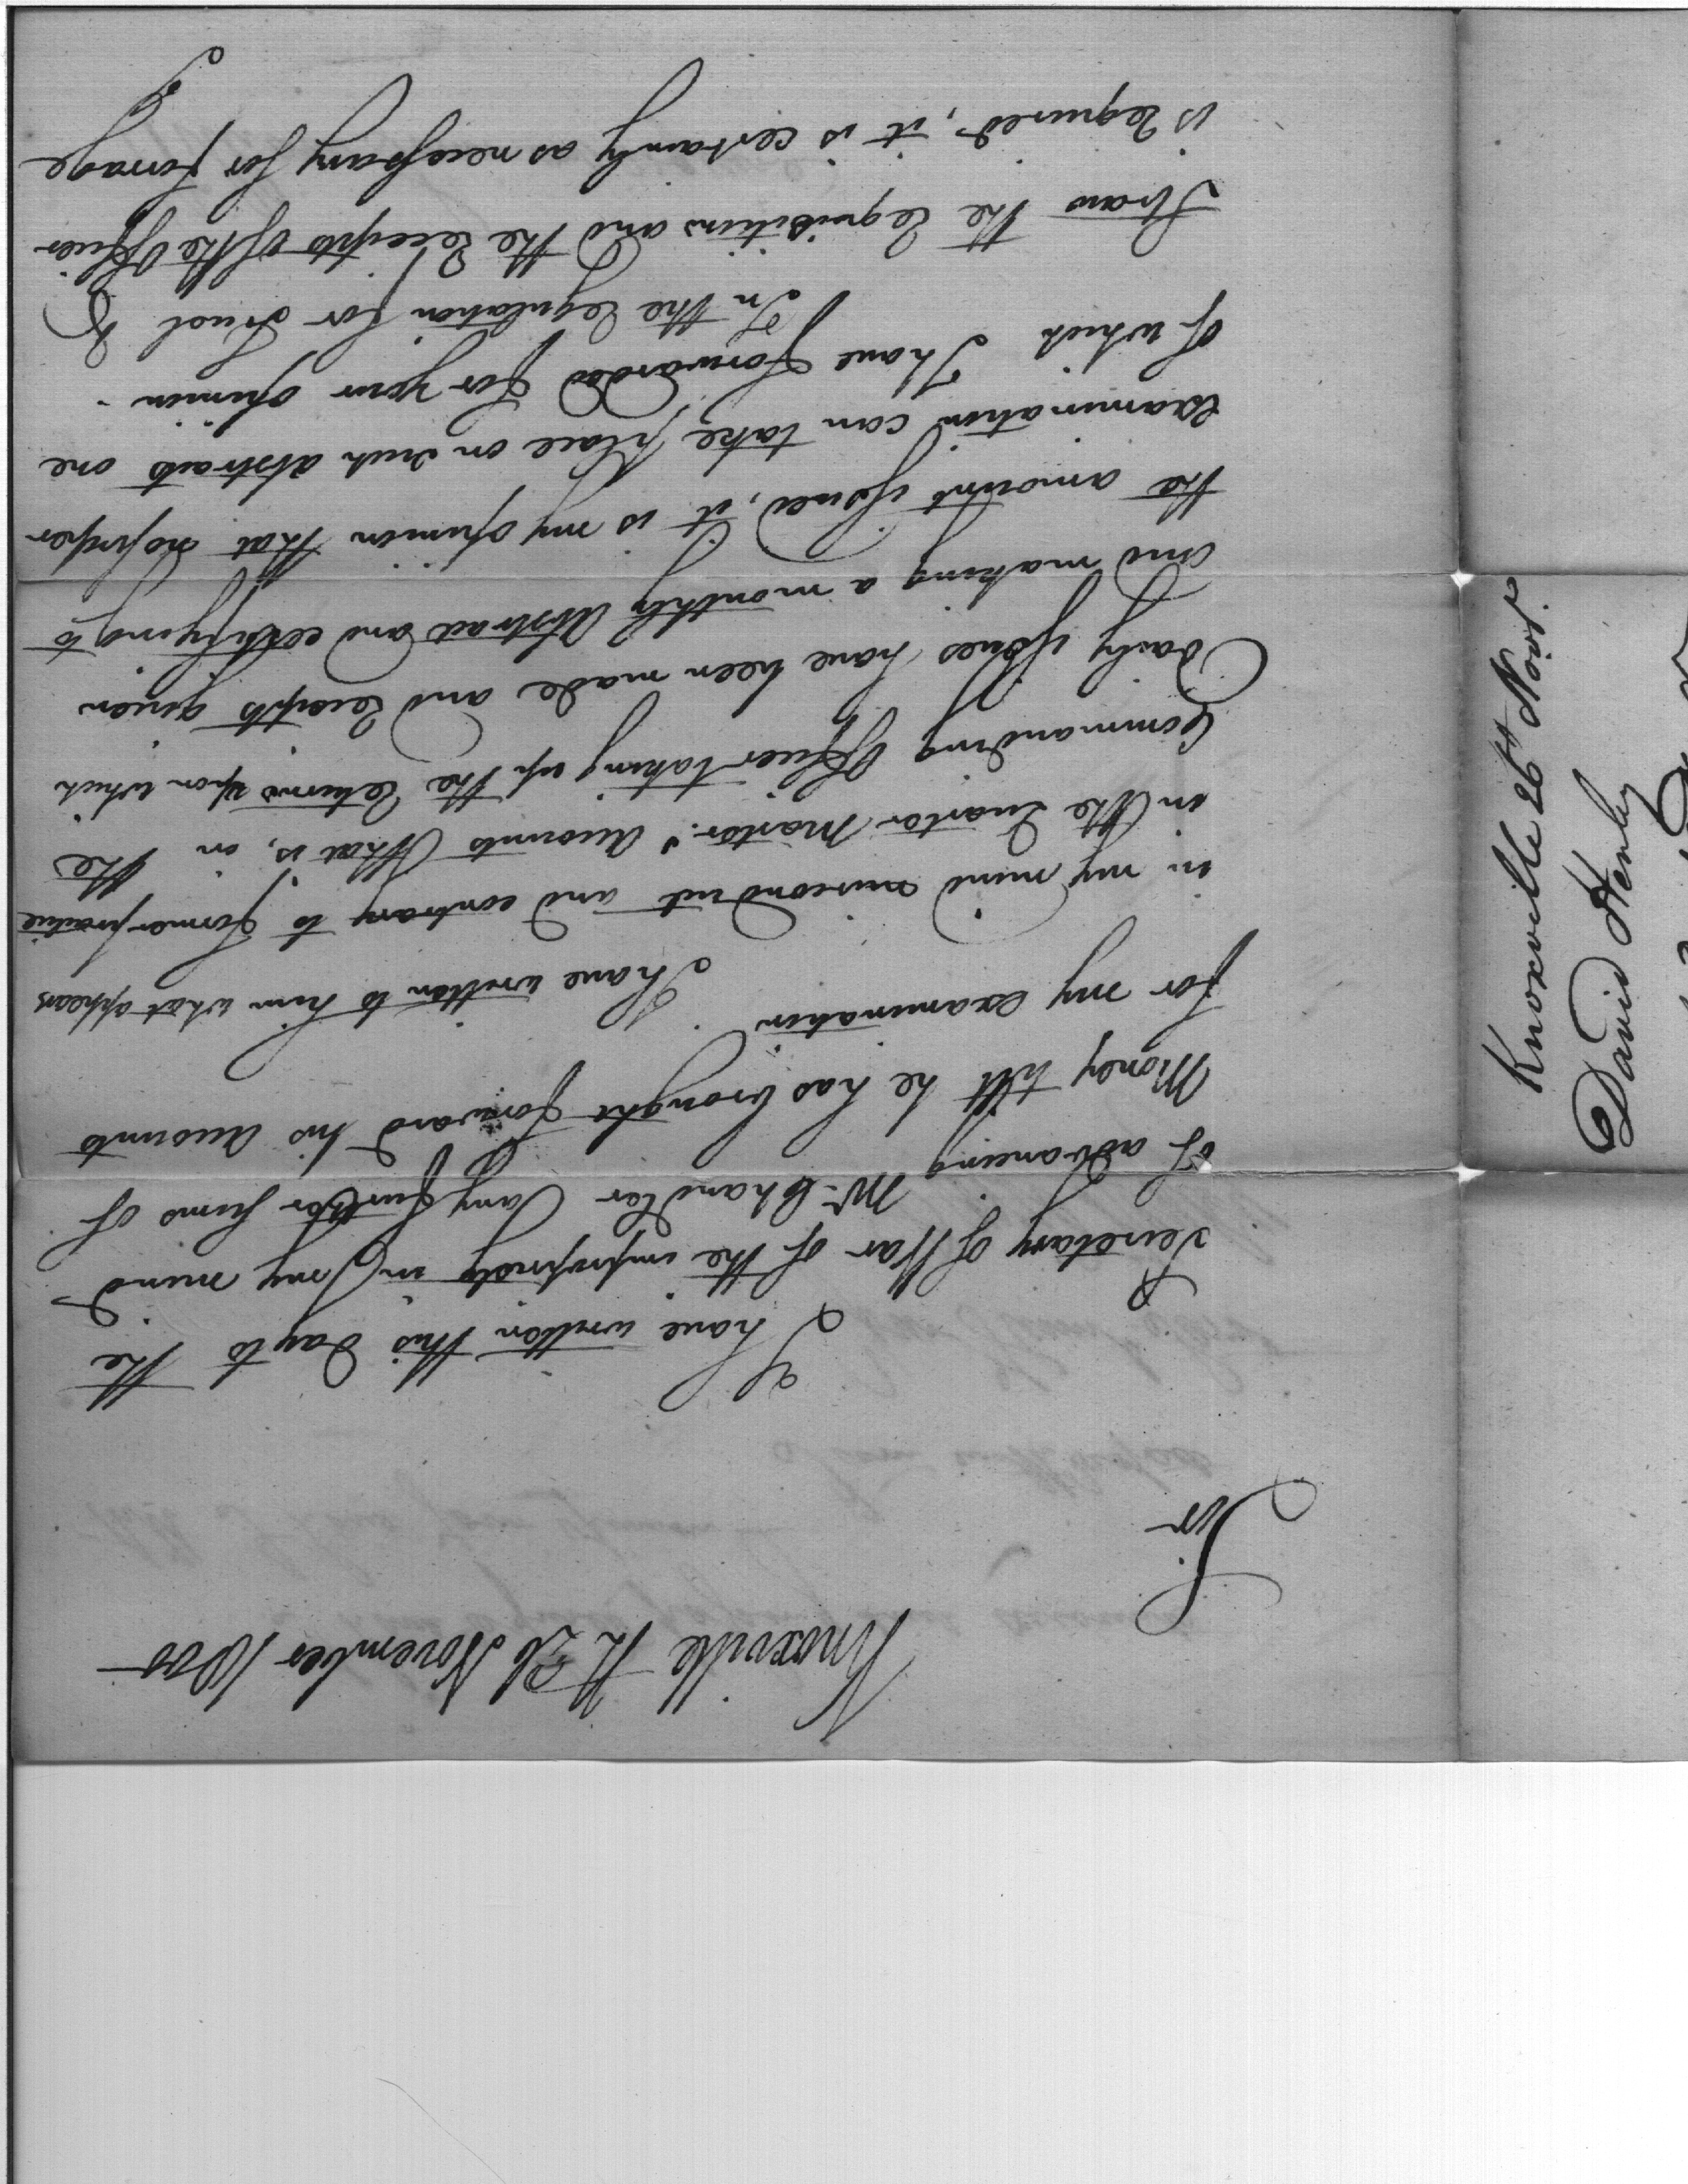 Knoxville the 26 November 1800
Sir
I have written this day to the
Secretary of War of the impropriety in my mind
of advancing Mr. Chandler any further sums of
Money till he has brought forward his accounts
for my examination
I have written to him what appears
in my mind misconduct and contrary to former practice
in the Quarter Master's accounts (that is, in the
Commanding Officer taking up the returns upon which
Daily issues have been made and receipts given
and making a monthly Abstract and certifying to
the amount issued, it is my opinion that no proper
examination can take place on such abstracts one
of which I have forwarded for your opinion.
In the regulation for Fuel &
Straw the requisition and the receipts of the Officer
is required, it is certainly as necessary for forrage
Knoxville 26th Novr.
David Henley